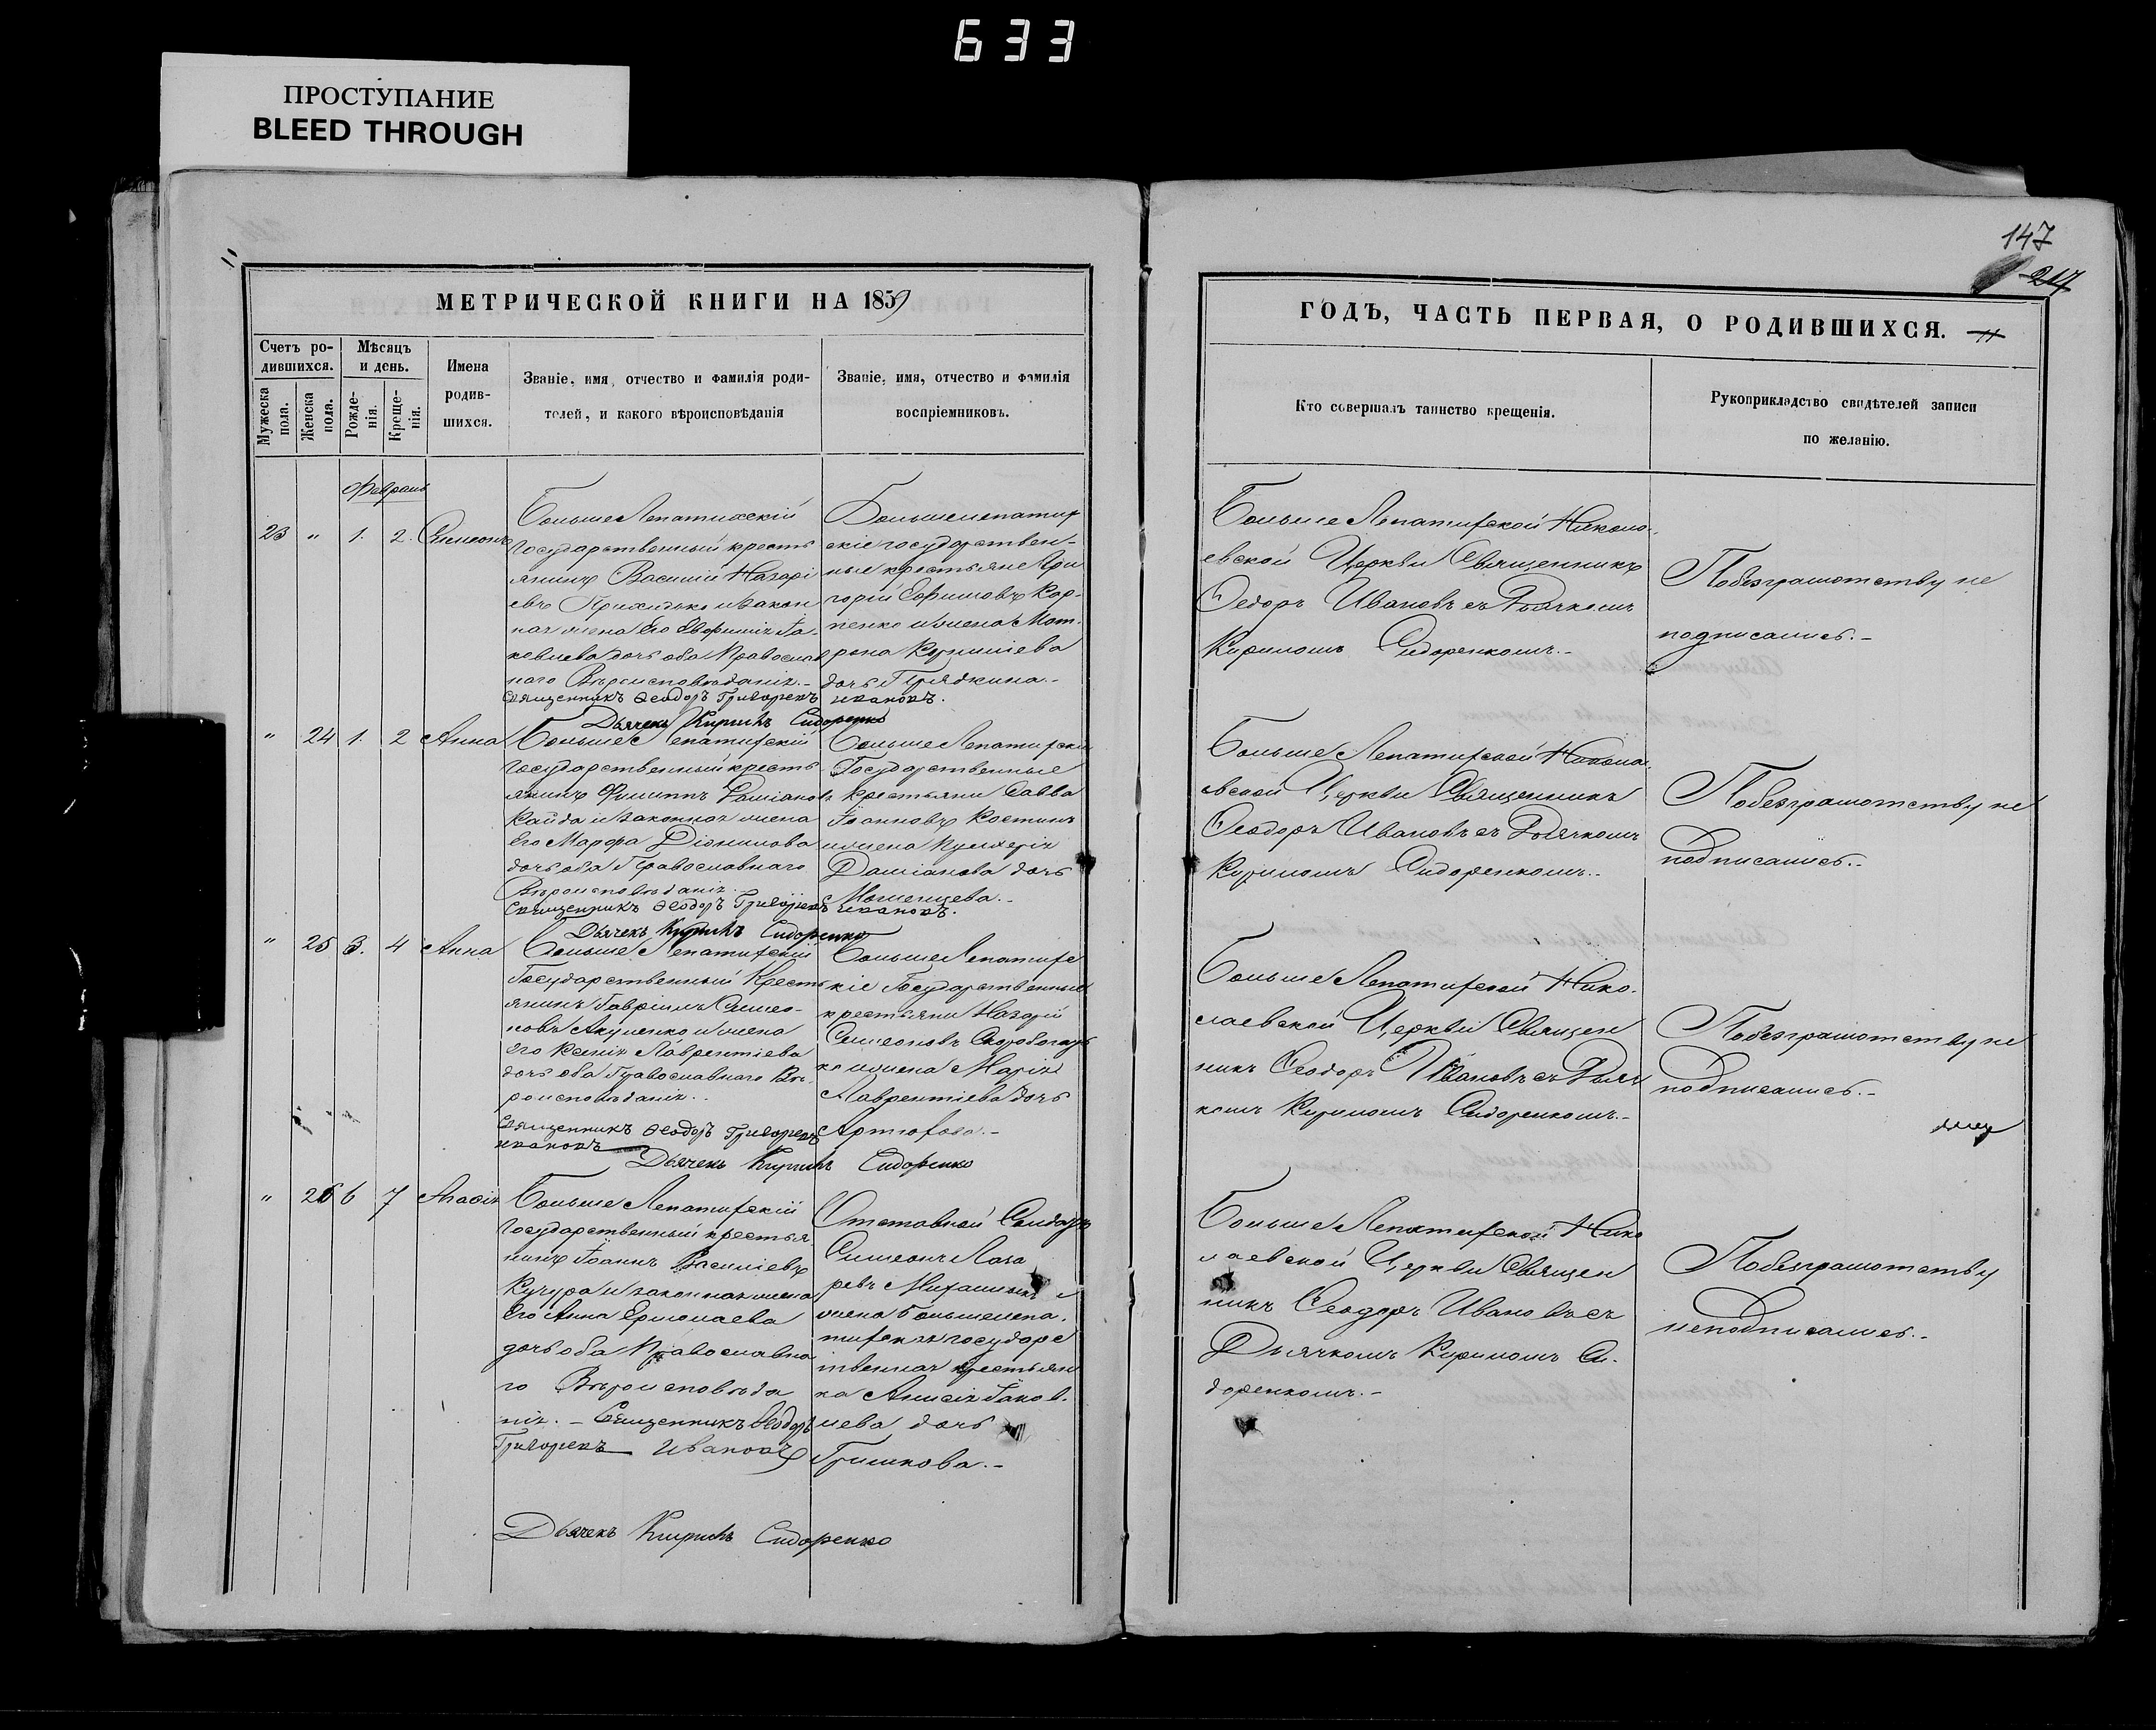 633
ПРОСТУПАНИЕ
BLEED THROUGH
147
217
МЕТРИЧЕСКОЙ КНИГИ НА 1859
Счетъ ро-
дившихся.
Мужеска
пола.
Женска
пола.
Мѣсяцъ
и день.
Рожде-
нія.
Креще-
нія.
Имена
родив-
шихся.
Званіе, имя, отчество и фамилія роди-
телей, и какого вѣроисповѣданія
Званіе, имя, отчество и фамилія
воспріемниковъ.
Февраль
23 " 1. 2. Симеонъ
Больше Лепатихскій
Государственный кресть
янинъ Василій Назарі
евъ Прихидько и закон
ная жена Его Евфимія Іа-
ковлева дочь оба Православ
наго Вѣроисповѣданія.-
Священникъ Ѳеодоръ Григорьевъ Ивановъ.
Дьячекъ Кирилъ Сидоренко
Большелепатих
скіе государствен-
ные крестьяне Гри
горій Ефимовъ Кар-
пенко и жена Мат-
рона Корниліева
дочь Прядкина.-
" 24 1. 2 Анна
Больше Лепатихскій
Государственный кресть
янинъ Филиппъ Даміановъ
Кайда и законная жена
Его Марфа Діонисова
дочь оба Православнаго
Вѣроисповѣданія.
Священникъ Ѳеодоръ Григорьевъ Ивановъ.
Дьячекъ Кирилъ Сидоренко
Больше Лепатихскіе
Государственные
крестьяни Савва
Іоанновъ Костинъ
и жена Пулхерія
Даміанова дочь
" 25 3. 4 Анна
Больше Лепатихскій
Государственный Кресть
янинъ Гавріилъ Симео-
новъ Акуленко и жена
Его Ксенія Лаврентіева
дочь оба Православнаго Вѣ-
роисповѣданія.-
Священникъ Ѳеодоръ Григорьевъ
Ивановъ
Дьячекъ Кирилъ Сидоренко
Больше Лепатихс
кіе Государственные
крестьяни Назарій
Симеоновъ Скоробогать
ко и жена Марія
Лаврентіева дочь
Артюхова.-
" 26 6 7 Агафія
Больше Лепатихскій
Государственный крестья
нинъ Іоаннъ Василіевъ
Кучура и законная жена
Его Анна Ермолаева
дочь оба Православна
го Вѣроисповѣда
нія.- Священникъ Ѳеодоръ
Григорьевъ Ивановъ
Дьячекъ Кирилъ Сидоренко
Отставной Солдатъ
Симеонъ Лаза
ревъ
жена Большелепа-
тихская государс
твенная крестьян
ка Анисія Іаков-
лева дочь
Гришкова.-
ГОДЪ, ЧАСТЬ ПЕРВАЯ, О РОДИВШИХСЯ.
Кто совершалъ таинство крещенія.
Рукоприкладство свидѣтелей записи
по желанію.
Больше Лепатихской Никола-
евской Церкви Священникъ
Ѳедоръ Ивановъ съ Дьячкомъ
Кириломъ Сидоренкомъ.-
По безграмотству не
подписались.-
Больше Лепатихской Никола-
евской Церкви Священникъ
Ѳеодоръ Ивановъ съ Дьячкомъ
Кириломъ Сидоренкомъ.-
По безграмотству не
подписались.-
Больше Лепатихской Нико-
лаевской Церкви Священ
никъ Ѳеодоръ Ивановъ съ Дьяч
комъ Кириломъ Сидоренкомъ.-
По безграмотству не
подписались.-
Больше Лепатихской Нико
лаевской Церкви Священ
никъ Ѳеодоръ Ивановъ съ
Дьячкомъ Кириломъ Си-
доренкомъ.-
По безграмотству
неподписались.-